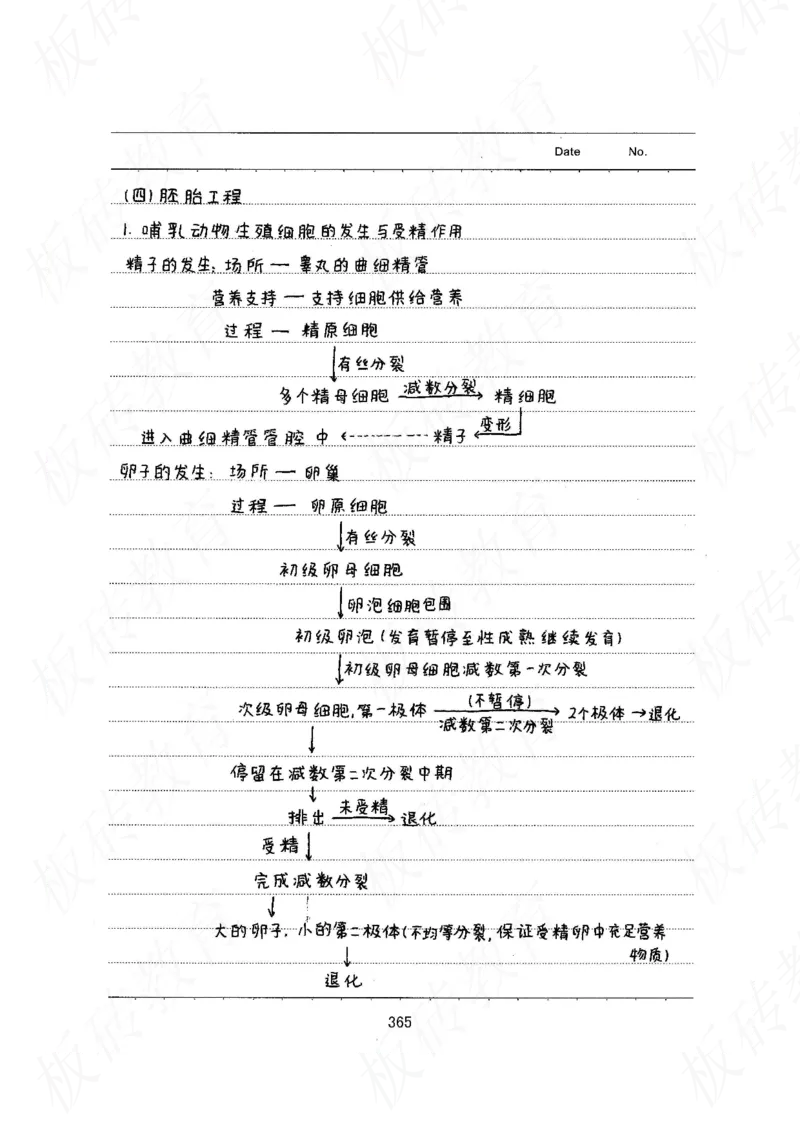 Date No.
(四)胚胎工程
1. 哺乳动物生殖细胞的发生与受精作用
精子的发生: 场所 — 睾丸的曲细精管
营养支持 — 支持细胞供给营养
过程 — 精原细胞
有丝分裂
多个精母细胞 减数分裂 精细胞
变形
进入曲细精管管腔中 精子
卵子的发生: 场所 — 卵巢
过程 — 卵原细胞
有丝分裂
初级卵母细胞
卵泡细胞包围
初级卵泡(发育暂停至性成熟继续发育)
初级卵母细胞减数第一次分裂
次级卵母细胞,第一极体 (不暂停) 减数第二次分裂 → 2个极体 → 退化
停留在减数第二次分裂中期
排出 未受精 → 退化
受精
完成减数分裂
大的卵子, 小的第二极体(不均等分裂, 保证受精卵中充足营养
物质)
退化
365
板砖教育